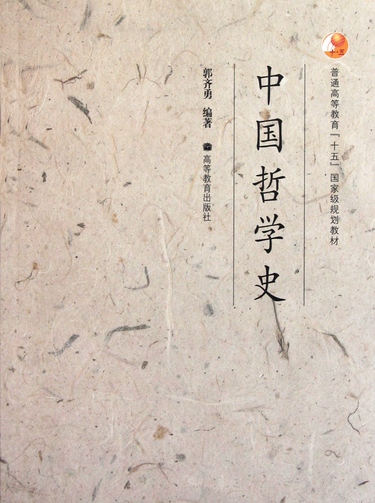 普通高等教育「十五」国家级规划教材
中国哲学史
郭齐勇 编著
高等教育出版社